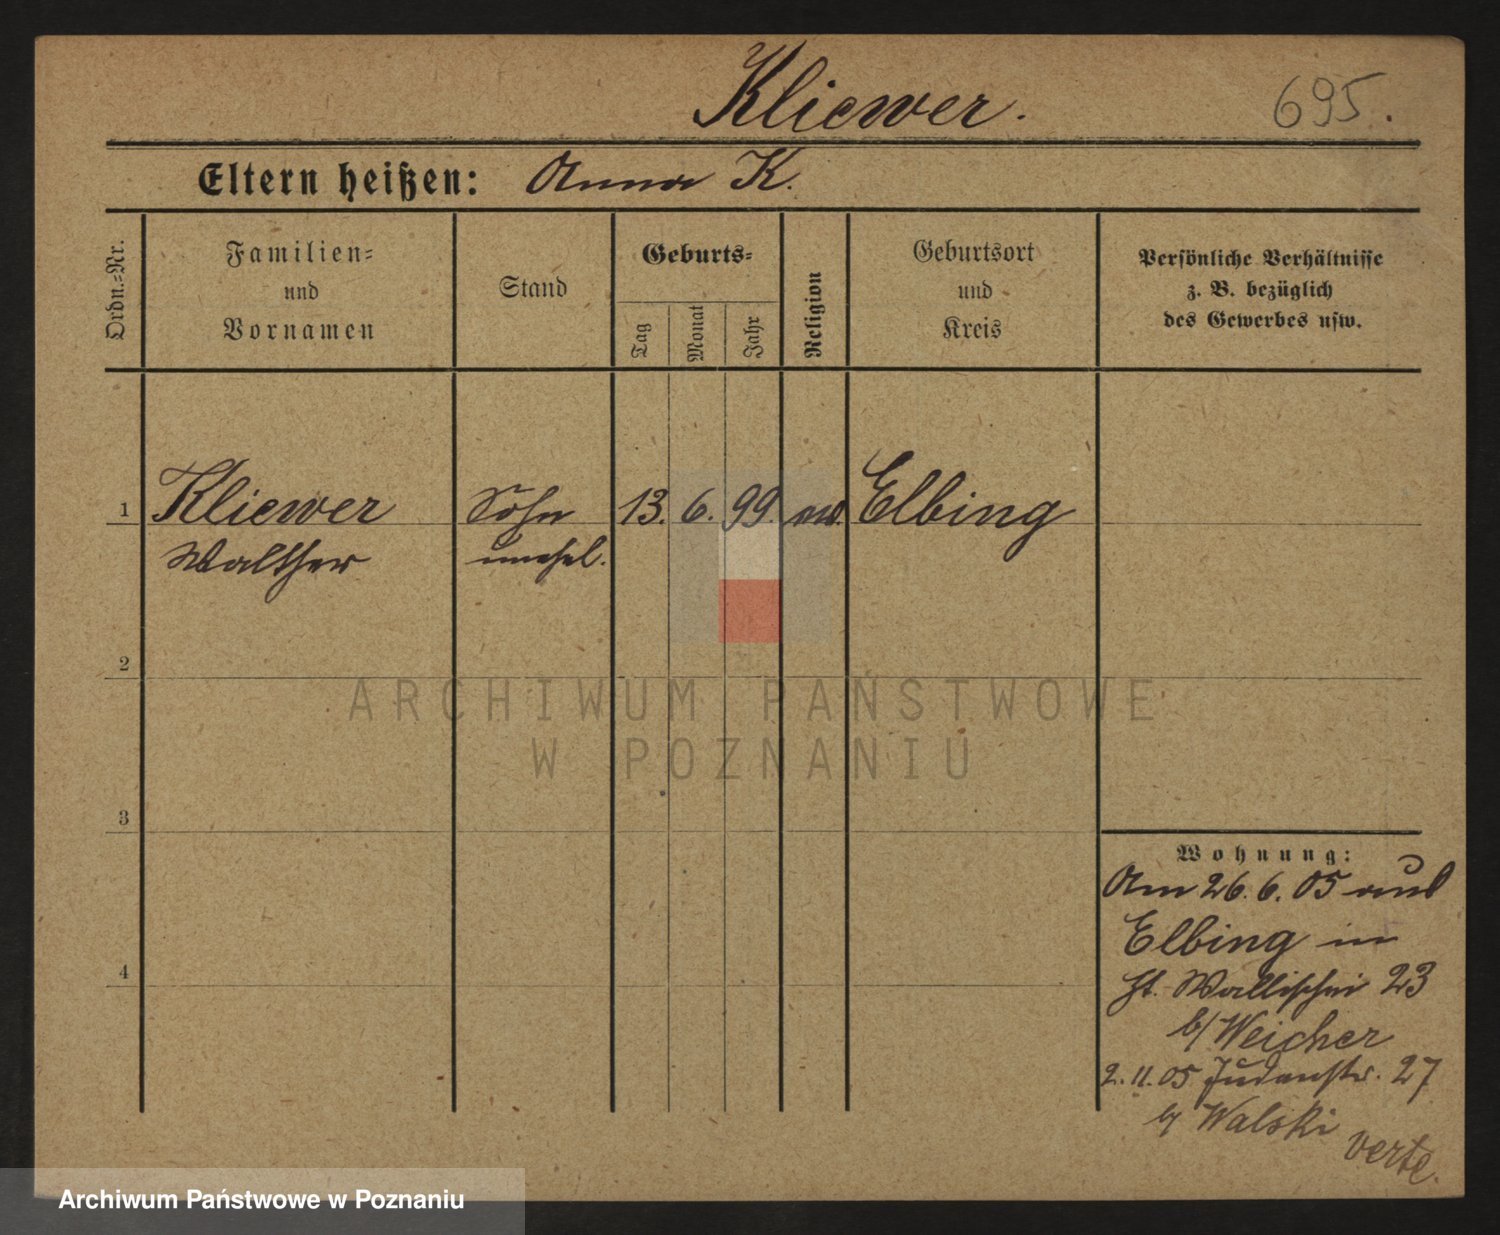 Kliewer.
695.
Eltern heißen: Anna K.
Ordn.=Nr.
Familien=
und
Vornamen
Stand
Geburts=
Tag
Monat
Jahr
Religion
Geburtsort
und
Kreis
Persönliche Verhältnisse
z. B. bezüglich
des Gewerbes usw.
1 Kliewer Sohn 13. 6. 99. ev. Elbing
Walther unehel.
2
ARCHIWUM PAŃSTWOWE
W POZNANIU
3
Wohnung:
Am 26.6.05 aus
Elbing in
4
St. Wallischei 23
b/ Weicher
2.11.05 Judenstr. 27
b/ Walski
verte.
Archiwum Państwowe w Poznaniu